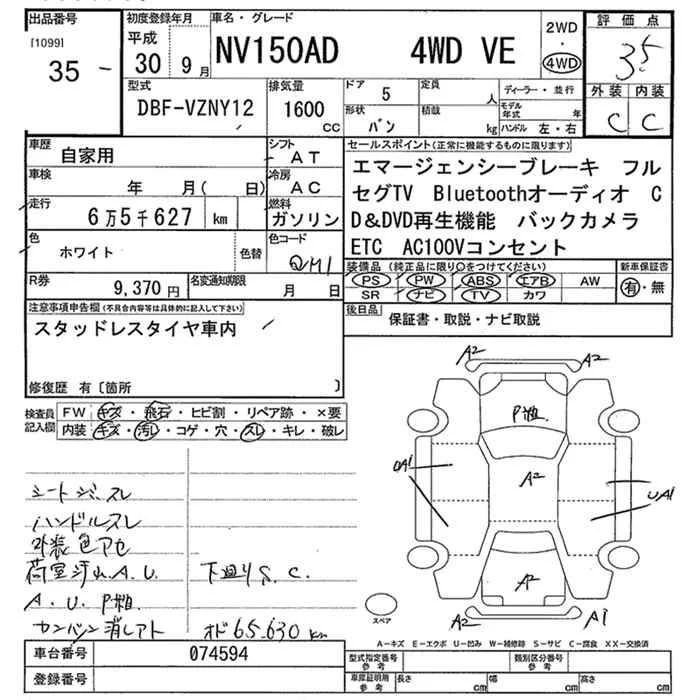 出品番号
[1099]
35
初度登録年月
平成
30 9 月
車名・グレード
NV150AD 4WD VE
2WD
・
4WD
評価点
3.5
外装 内装
C C
型式
DBF-VZNY12
排気量
1600 cc
ドア 5
形状 バン
定員 人
積載 kg
ディーラー・並行
モデル年式 年
ハンドル 左・右
車歴
自家用
シフト
AT
車検
年 月( 日)
冷房
AC
走行
6万5千627 km
燃料
ガソリン
色
ホワイト
色替
色コード
QM1
R券
9,370円
名変通知期限
月 日
セールスポイント(正常に機能するものに限ります)
エマージェンシーブレーキ フル
セグTV Bluetoothオーディオ C
D&DVD再生機能 バックカメラ
ETC AC100Vコンセント
装備品 (純正品に限り○をつけてください)
PS PW ABS エアB AW
SR ナビ TV カワ
新車保証書
有・無
後日品
保証書・取説・ナビ取説
注意事項申告欄(不具合内容等は具体的に記入して下さい)
スタッドレスタイヤ車内
修復歴 有〔箇所 〕
検査員
記入欄
FW キズ・飛石・ヒビ割・リペア跡・×要
内装 キズ・汚レ・コゲ・穴・スレ・キレ・破レ
ハンドルスレ
外装色アセ
荷室汚れ A.U.
下廻りS.C.
A.U.P粗
カンバン消しアト
オド65.630km
A2
A2
P粗
UA1
A2
UA1
A2
A2
A1
スペア
A-キズ E-エクボ U-凹み W-補修跡 S-サビ C-腐食 XX-交換済
車台番号
074594
登録番号
型式指定番号
参考
類別区分番号
参考
車庫証明用
参考
長さ cm
幅 cm
高さ cm